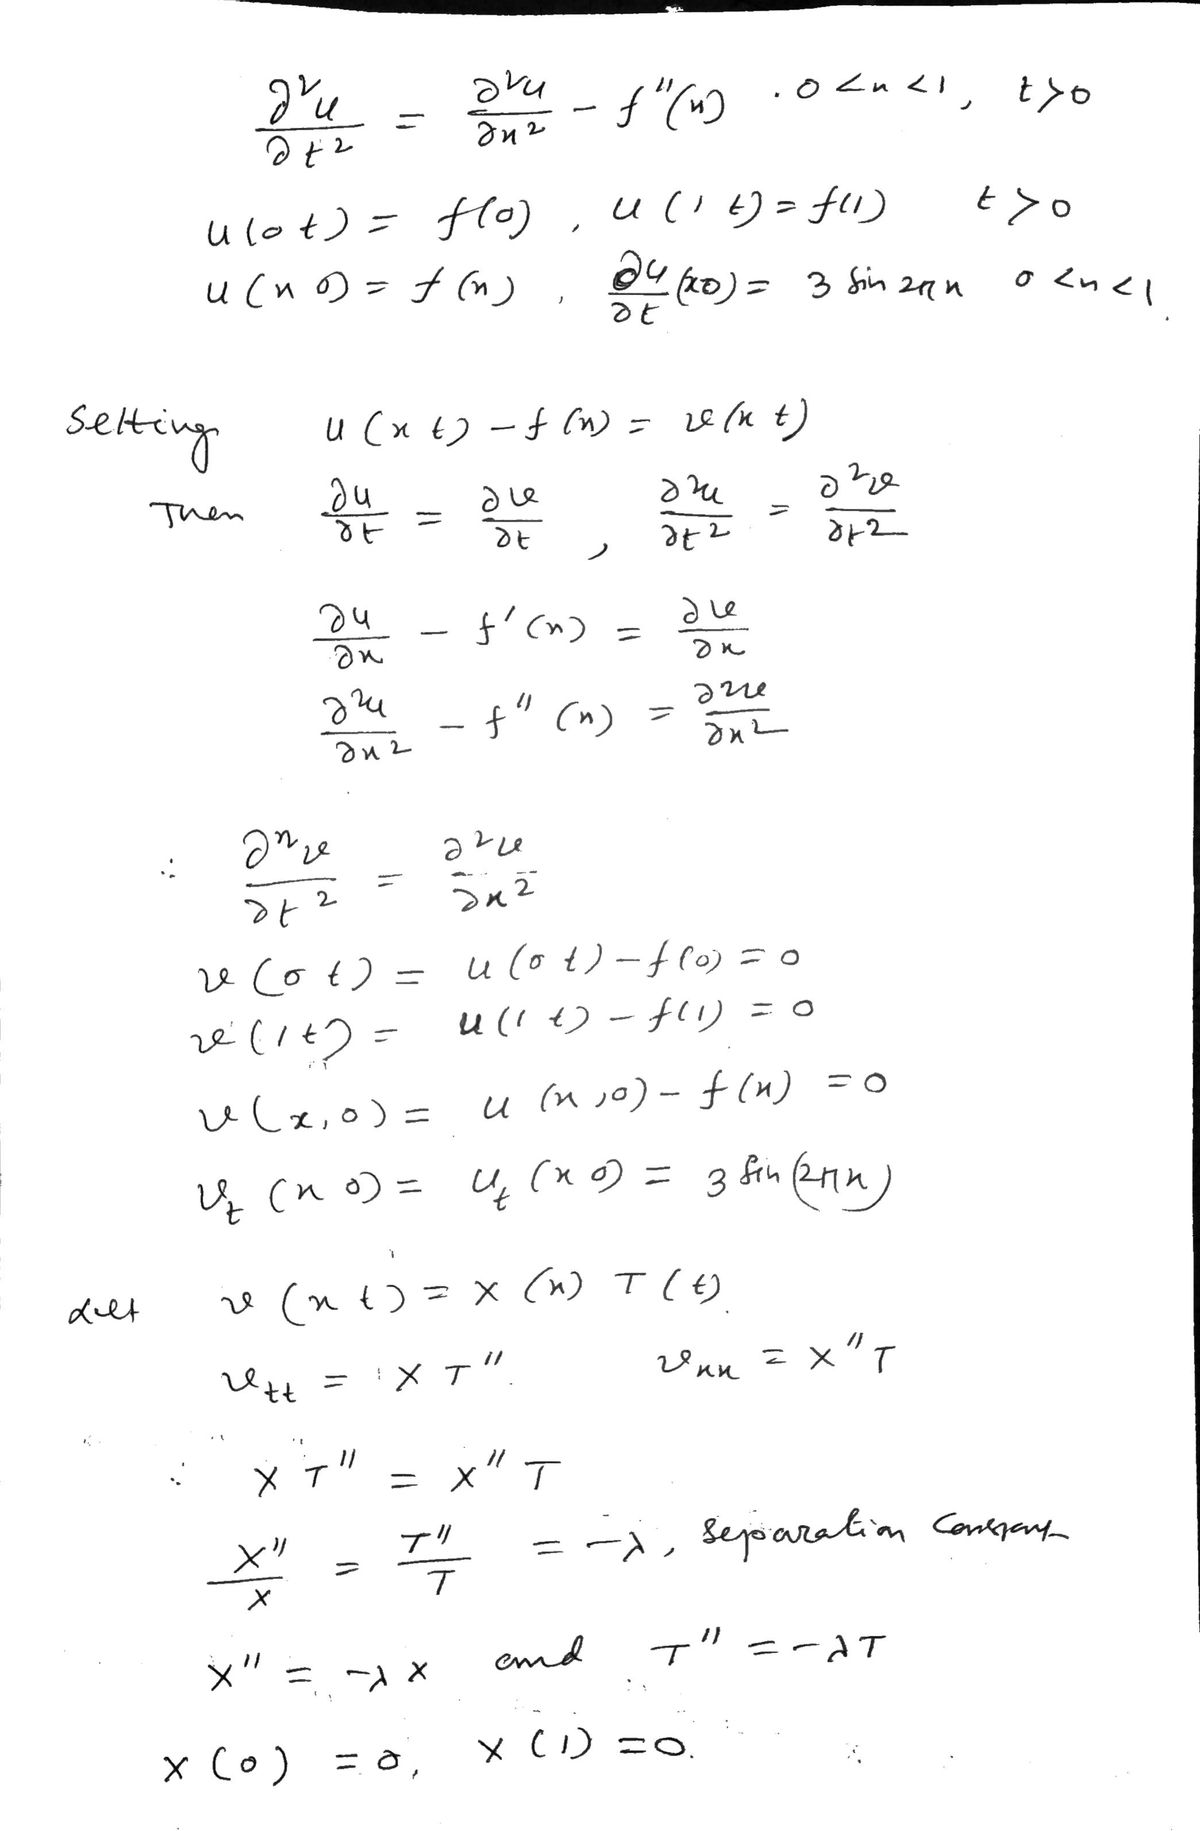 ∂²u/∂t² = ∂²u/∂x² − f''(x) . 0 < x < 1, t > 0
u(0 t) = f(0), u(1 t) = f(1) t > 0
u(x 0) = f(x), ∂u/∂t (x 0) = 3 sin 2πx 0 < x < 1.
Setting u(x t) − f(x) = v(x t)
Then ∂u/∂t = ∂v/∂t, ∂²u/∂t² = ∂²v/∂t²
∂u/∂x − f'(x) = ∂v/∂x
∂²u/∂x² − f''(x) = ∂²v/∂x²
∴ ∂²v/∂t² = ∂²v/∂x²
v(0 t) = u(0 t) − f(0) = 0
v(1 t) = u(1 t) − f(1) = 0
v(x, 0) = u(x, 0) − f(x) = 0
v_t (x 0) = u_t (x 0) = 3 sin(2πx)
Let v(x t) = X(x) T(t)
v_tt = X T'' v_xx = X'' T
∴ X T'' = X'' T
X''/X = T''/T = −λ, separation constant
X'' = −λ X and T'' = −λT
X(0) = 0, X(1) = 0.